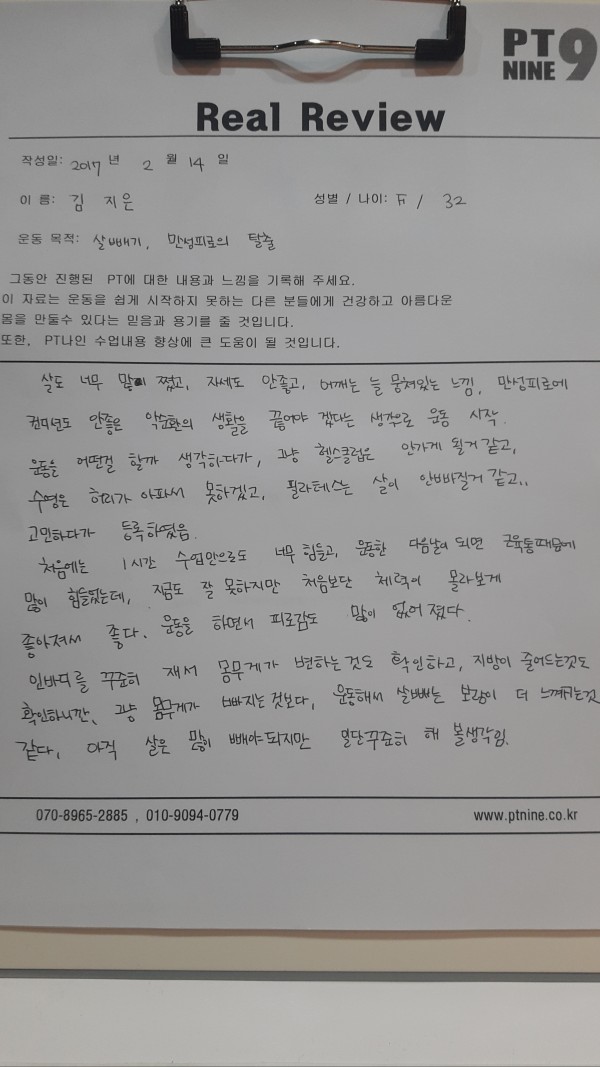 PT
NINE 9
Real Review
작성일: 2017 년 2 월 14 일
이 름: 김 지은 성별 / 나이: F / 32
운동 목적: 살빼기, 만성피로의 탈출
그동안 진행된 PT에 대한 내용과 느낌을 기록해 주세요.
이 자료는 운동을 쉽게 시작하지 못하는 다른 분들에게 건강하고 아름다운
몸을 만들수 있다는 믿음과 용기를 줄 것입니다.
또한, PT나인 수업내용 향상에 큰 도움이 될 것입니다.
살도 너무 많이 쪘고, 자세도 안좋고, 어깨는 늘 뭉쳐있는 느낌, 만성피로에
컨디션도 안좋은 악순환의 생활을 끊어야 겠다는 생각으로 운동 시작.
운동을 어떤걸 할까 생각하다가, 그냥 헬스클럽은 안가게 될거 같고,
수영은 허리가 아파서 못하겠고, 필라테스는 살이 안빠질거 같고..
고민하다가 등록하였음.
처음에는 1시간 수업만으로도 너무 힘들고, 운동한 다음날이 되면 근육통때문에
많이 힘들었는데, 지금도 잘 못하지만 처음보단 체력이 몰라보게
좋아져서 좋다. 운동을 하면서 피로감도 많이 없어 졌다.
인바디를 꾸준히 재서 몸무게가 변하는것도 확인하고, 지방이 줄어드는것도
확인하니깐, 그냥 몸무게가 빠지는 것보다, 운동해서 살빼는 보람이 더 느껴지는것
같다, 아직 살은 많이 빼야되지만 일단꾸준히 해 볼생각임.
070-8965-2885 , 010-9094-0779 www.ptnine.co.kr